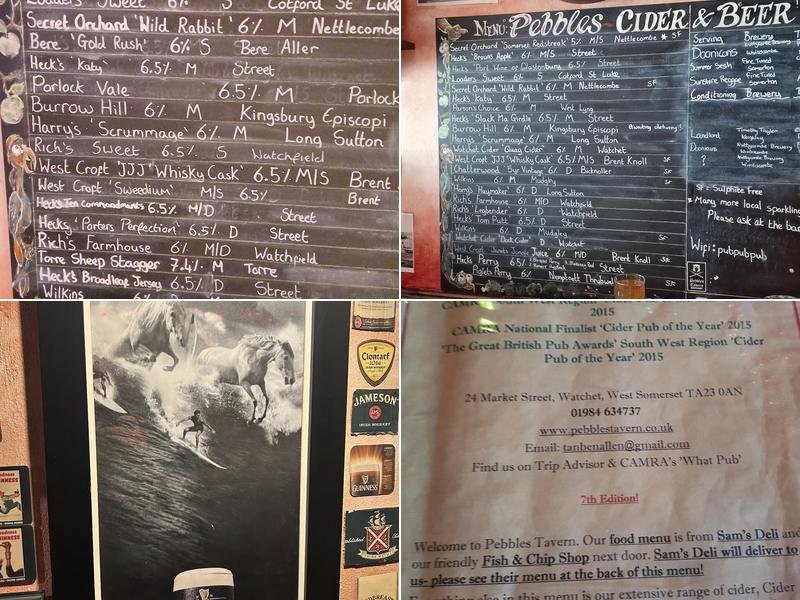 Loaders Sweet 6% S Cotford St Luke
Secret Orchard 'Wild Rabbit' 6% M Nettlecombe
Bere 'Gold Rush' 6% S Bere Aller
Heck's 'Katy' 6.5% M Street
Porlock Vale 6.5% M Porlock
Burrow Hill 6% M Kingsbury Episcopi
Harry's 'Scrummage' 6% M Long Sutton
Rich's Sweet 6.5% S Watchfield
West Croft 'JJJ' Whisky Cask' 6.5% M/S Brent
West Croft 'Sweedium' M/S 6.5% Brent
Heck's Ten Commandments 6.5% M/D Street
Hecks 'Porters Perfection' 6.5% D Street
Rich's Farmhouse 6% M/D Watchfield
Torre Sheep Stagger 7.4% M Torre
Heck's Broadleaf Jersey 6.5% D Street
Wilkins 6% D
MENU: Pebbles CIDER & BEER!
Secret Orchard 'Somerset Redstreak' 5% M/S Nettlecombe * SF
Hecks 'Browns Apple' 6% M/S Street
Hecks 'Port Wine of Glastonbury 6.5% Street
Loaders Sweet 6% S Cotford St Luke
Secret Orchard 'Wild Rabbit' 6% M Nettlecombe SF
Heck's Katy 6.5% M Street
Parson's Choice 6% M West Lyng
Heck's 'Slack Ma Girdle' 6.5% M Street
Burrow Hill 6% M Kingsbury Episcopi Awaiting delivery!
Harry's 'Scrummage' 6% M Long Sutton
Watchet Cider 6% M Watchet
West Croft JJJ 'Whisky Cask' 6.5% M/S Brent Knoll SF
Chatterwood 'Dyr Vintage' 6% D Bicknoller SF
Wilkins 6% M Mudgley
Harry's 'Haymaker' 6% D Long Sutton
Rich's Farmhouse 6% M/D Watchfield
Rich's Legbender 6% D Watchfield
Heck's Tom Putt 6.5% D Street
Wilkins 6% D Mudgley
Watchet Cider 'Dark Cider' D Watchet SF
West Croft 'Janet's Jungle Juice' 6% M/D Brent Knoll SF
Hecks Perry 6.5% Street
Palets Perry 6% SF
Serving Brewery
Doonicans
Summer Sesh Fine Tuned Somerton
Sunshine Reggae Fine Tuned Somerton
Conditioning Brewery
Landlord Timothy Taylor Keighley
Doonicans
?
SF = Sulphite Free
* Many more local sparkling
Please ask at the bar
Wifi: pubpubpub
Clontarf
1014
JAMESON
IRISH WHISKEY
GUINNESS
GUINNESS
CAMRA South West Region 'Cider
2015
CAMRA National Finalist 'Cider Pub of the Year' 2015
'The Great British Pub Awards' South West Region 'Cider
Pub of the Year' 2015
24 Market Street, Watchet, West Somerset TA23 0AN
01984 634737
www.pebblestavern.co.uk
Email: tanbenallen@gmail.com
Find us on Trip Advisor & CAMRA's 'What Pub'
7th Edition!
Welcome to Pebbles Tavern. Our food menu is from Sam's Deli and
our friendly Fish & Chip Shop next door. Sam's Deli will deliver to
us- please see their menu at the back of this menu!
Everything else in this menu is our extensive range of cider, Cider